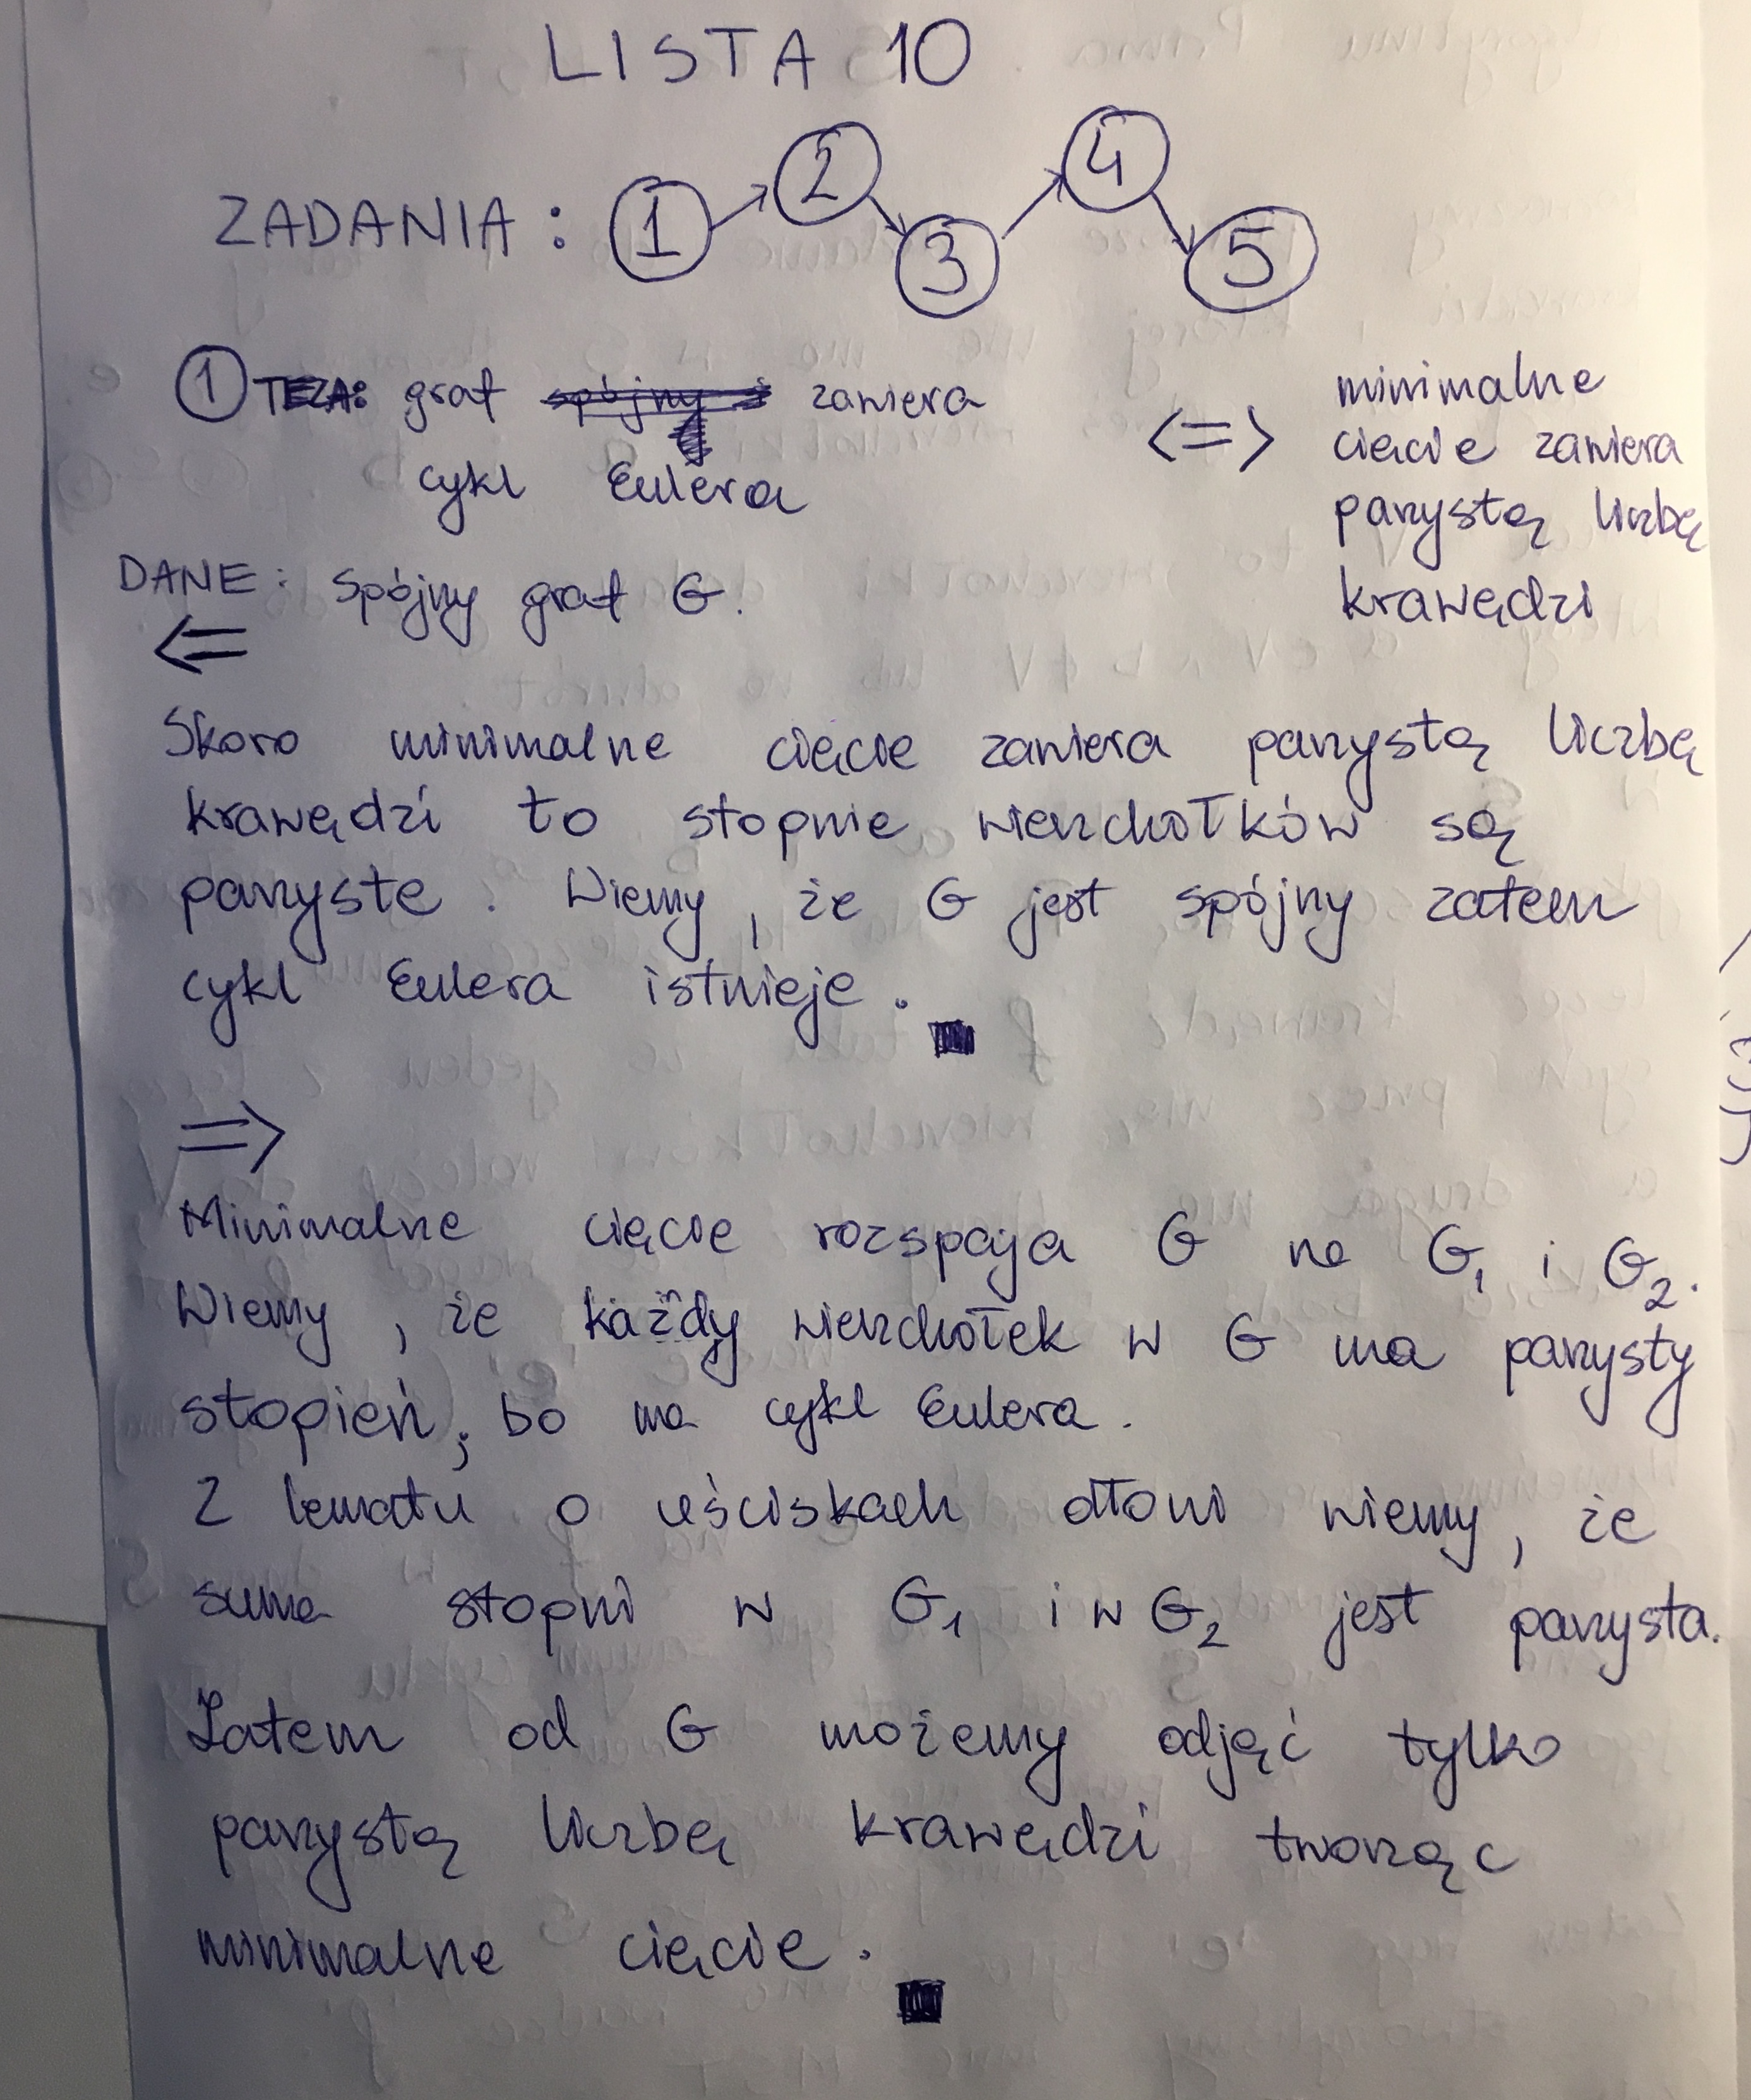 LISTA 10
ZADANIA: 1 2 3 4 5
① TEZA: graf spójny i zawiera <=> minimalne
cykl Eulera cięcie zawiera
parzystą liczbę
krawędzi
DANE: spójny graf G.
<=
Skoro minimalne cięcie zawiera parzystą liczbę
krawędzi to stopnie wierzchołków są
parzyste. Wiemy, że G jest spójny zatem
cykl Eulera istnieje.
=>
Minimalne cięcie rozspaja G na G₁ i G₂.
Wiemy, że każdy wierzchołek w G ma parzysty
stopień, bo ma cykl Eulera.
Z lematu o uściskach dłoni wiemy, że
suma stopni w G₁ i w G₂ jest parzysta.
Zatem od G możemy odjąć tylko
parzystą liczbę krawędzi tworząc
minimalne cięcie.